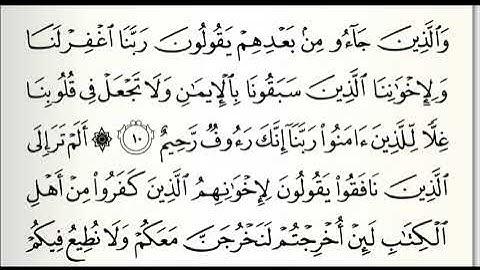 وَٱلَّذِينَ جَآءُو مِنۢ بَعْدِهِمْ يَقُولُونَ رَبَّنَا ٱغْفِرْ لَنَا
وَلِإِخْوَٰنِنَا ٱلَّذِينَ سَبَقُونَا بِٱلْإِيمَٰنِ وَلَا تَجْعَلْ فِى قُلُوبِنَا
غِلًّا لِّلَّذِينَ ءَامَنُوا۟ رَبَّنَآ إِنَّكَ رَءُوفٌ رَّحِيمٌ ١٠ ۞ أَلَمْ تَرَ إِلَى
ٱلَّذِينَ نَافَقُوا۟ يَقُولُونَ لِإِخْوَٰنِهِمُ ٱلَّذِينَ كَفَرُوا۟ مِنْ أَهْلِ
ٱلْكِتَٰبِ لَئِنْ أُخْرِجْتُمْ لَنَخْرُجَنَّ مَعَكُمْ وَلَا نُطِيعُ فِيكُمْ